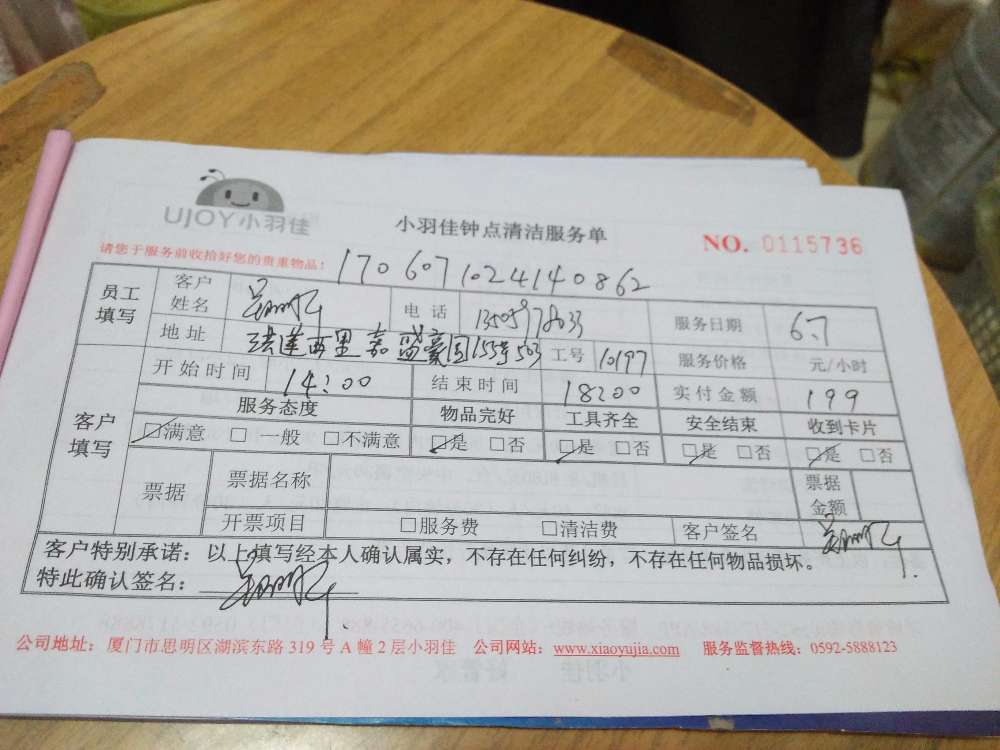 UJOY小羽佳
小羽佳钟点清洁服务单
NO. 0115736
请您于服务前收拾好您的贵重物品！
1706071024140862
员工填写 客户姓名 电话 服务日期 6.7
地址 莲西里嘉盛豪园155号503 工号 10197 服务价格 元/小时
客户填写 开始时间 14:00 结束时间 18:00 实付金额 199
服务态度 物品完好 工具齐全 安全结束 收到卡片
☑满意 □ 一般 □不满意 ☑是 □否 ☑是 □否 ☑是 □否 ☑是 □否
票据 票据名称 票据金额
开票项目 □服务费 □清洁费 客户签名
客户特别承诺：以上填写经本人确认属实，不存在任何纠纷，不存在任何物品损坏。
特此确认签名：
公司地址：厦门市思明区湖滨东路 319 号 A 幢 2 层小羽佳 公司网站：www.xiaoyujia.com 服务监督热线：0592-5888123